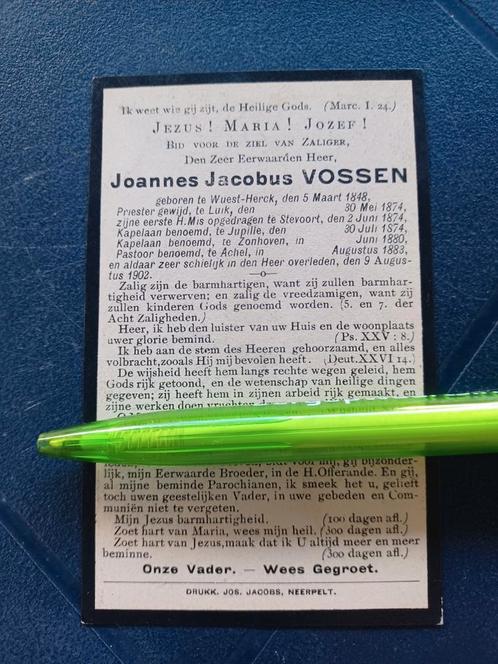 Ik weet wie gij zijt, de Heilige Gods. (Marc. I. 24.)
JEZUS! MARIA! JOZEF!
BID VOOR DE ZIEL VAN ZALIGER,
Den Zeer Eerwaarden Heer,
Joannes Jacobus VOSSEN
geboren te Wuest-Herck, den 5 Maart 1848,
Priester gewijd, te Luik, den 30 Mei 1874,
zijne eerste H. Mis opgedragen te Stevoort, den 2 Juni 1874,
Kapelaan benoemd, te Jupille, den 30 Juli 1874,
Kapelaan benoemd, te Zonhoven, in Juni 1880,
Pastoor benoemd, te Achel, in Augustus 1883,
en aldaar zeer schielijk in den Heer overleden, den 9 Augus-
tus 1902.
Zalig zijn de barmhartigen, want zij zullen barmhar-
tigheid verwerven; en zalig de vreedzamigen, want zij
zullen kinderen Gods genoemd worden. (5. en 7. der
Acht Zaligheden.)
Heer, ik heb den luister van uw Huis en de woonplaats
uwer glorie bemind. (Ps. XXV : 8.)
Ik heb aan de stem des Heeren gehoorzaamd, en alles
volbracht, zooals Hij mij bevolen heeft. (Deut. XXVI 14.)
De wijsheid heeft hem langs rechte wegen geleid, hem
Gods rijk getoond, en de wetenschap van heilige dingen
gegeven; zij heeft hem in zijnen arbeid rijk gemaakt, en
zijne werken doen vruchten
mij, gij bijzonder-
lijk, mijn Eerwaarde Broeder, in de H. Offerande. En gij,
al mijne beminde Parochianen, ik smeek het u, geliefd
toch uwen geestelijken Vader, in uwe gebeden en Commu-
niën niet te vergeten.
Mijn Jezus barmhartigheid. (100 dagen afl.)
Zoet hart van Maria, wees mijn heil. (300 dagen afl.)
Zoet hart van Jezus, maak dat ik U altijd meer en meer
beminne. (300 dagen afl.)
Onze Vader. — Wees Gegroet.
DRUKK. JOS. JACOBS, NEERPELT.